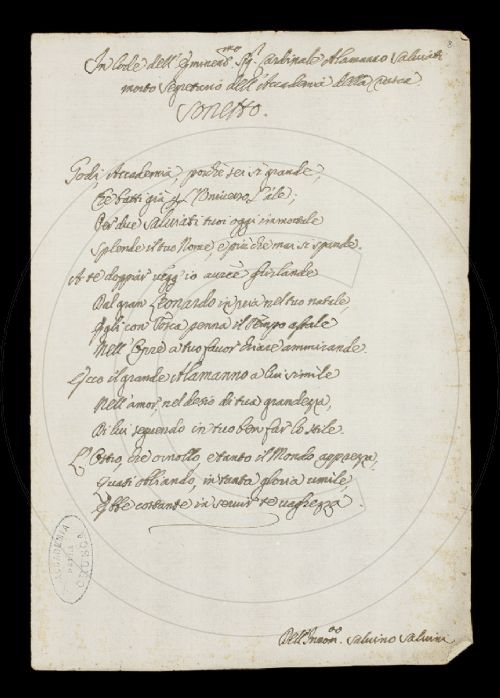 8
In lode dell'Eminend.mo Sig. Cardinale Alamanno Salviati
morto Segretario dell'Accademia della Crusca
Sonetto.
Godi, Accademia, poichè sei sì grande,
Che batti già per l'Universo l'ale;
Per due Salviati tuoi oggi immortale
Splende il tuo Nome, e più che mai si spande.
A te doppiar vegg'io auree ghirlande
Dal gran Leonardo in pria nel tuo natale,
Egli con Tosca penna il Tempo assale
Nell'Opre a tuo favor chiare ammirande.
Ecco il grande Alamanno a lui simile
Nell'amor, nel desio di tua grandezza,
Di lui seguendo in tuo ben far lo stile.
L'Ostro, che ornollo, e tanto il Mondo apprezza,
Quasi obliando, in tanta gloria umile,
Ebbe costante in servir te vaghezza.
ACCADEMIA
DELLA
CRUSCA
Dell'Innom.to Salvino Salvini